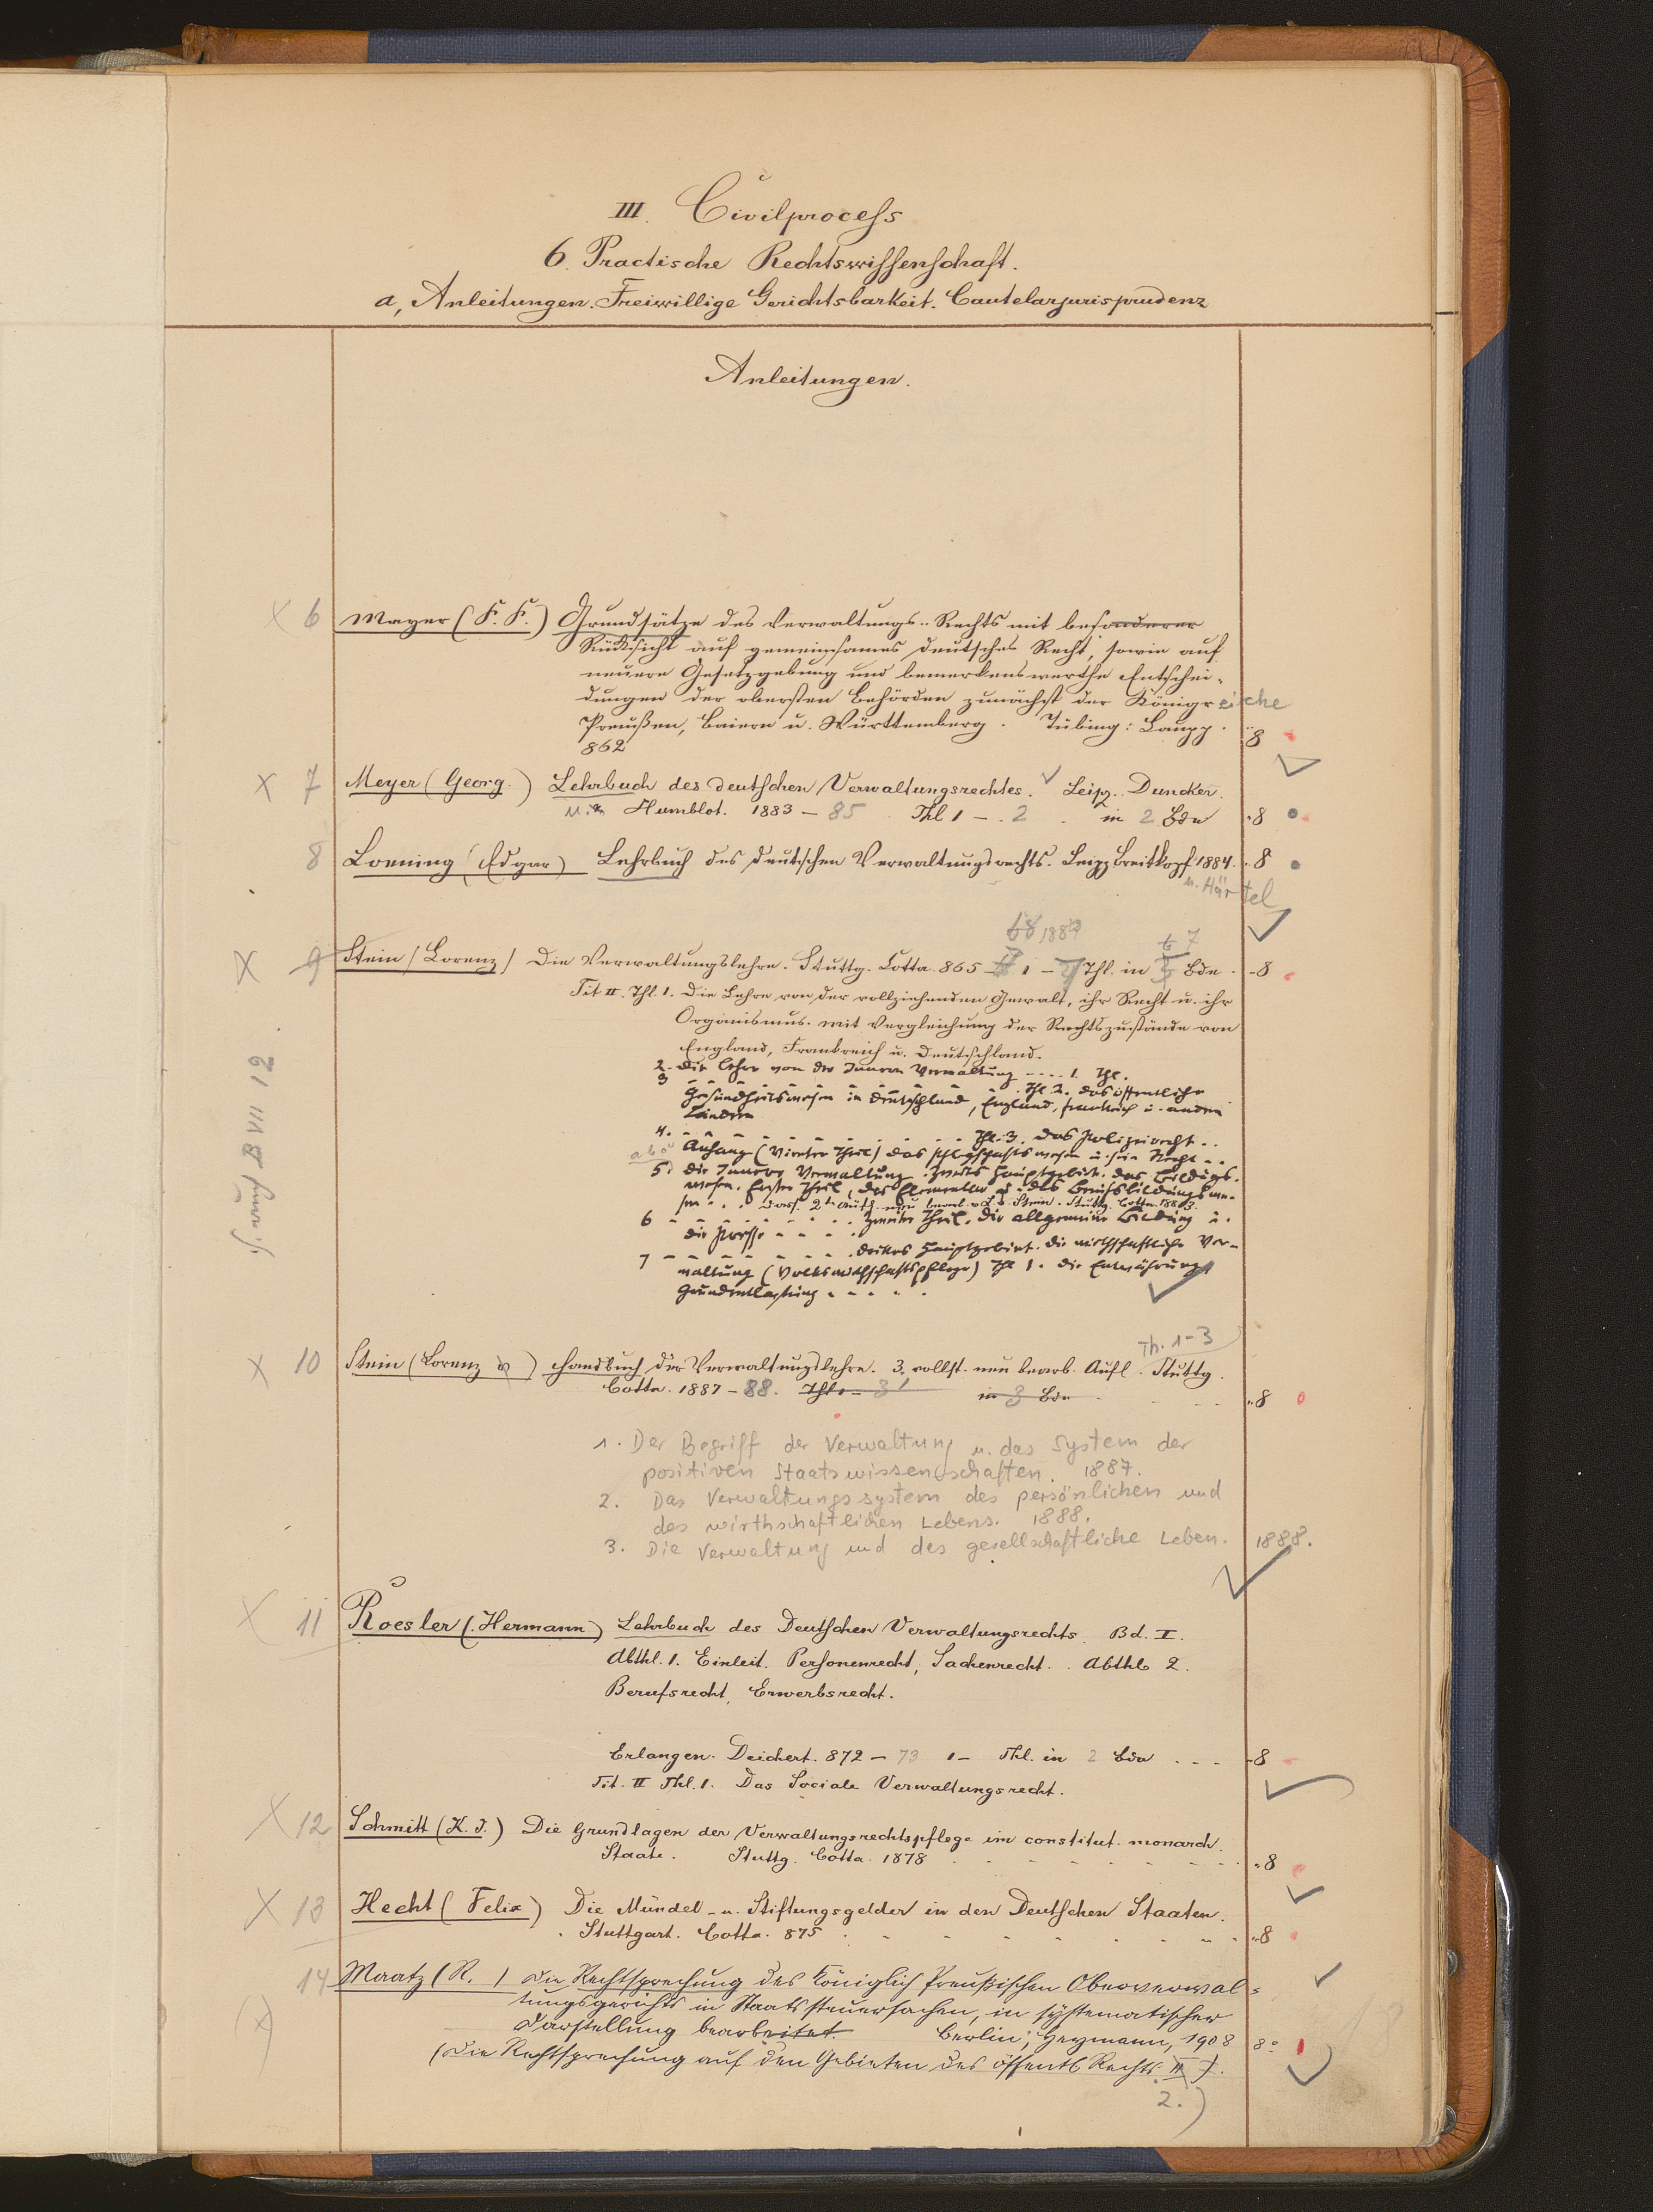 III. Civilprocess
6. Practische Rechtswissenschaft.
a, Anleitungen. Freiwillige Gerichtsbarkeit. Cautelarjurisprudenz
Anleitungen.
x 6 Mayer (F. F.) Grundsätze des Verwaltungs-Rechts mit besonderer
Rücksicht auf gemeinsames deutsches Recht, sowie auf
neuere Gesetzgebung und bemerkenswerthe Entschei-
dungen der obersten Behörden zunächst der Königreiche
Preußen, Baiern u. Württemberg. Tübing: Laupp.
862 8
x 7 Meyer (Georg.) Lehrbuch des deutschen Verwaltungsrechtes. Leipz. Duncker
u. Humblot. 1883 - 85 Thl 1 - 2 in 2 Bdn 8
8 Loening (Edgar) Lehrbuch des deutschen Verwaltungsrechts. Leipz Breitkopf 1884. 8
u. Härtel
x 9 Stein (Lorenz) Die Verwaltungslehre. Stuttg. Cotta. 865 - 1 - 7 Thl. in 7 Bde. 8
Tit II. Thl. 1. Die Lehre von der vollziehenden Gewalt, ihr Recht u. ihr
Organismus. mit Vergleichung der Rechtszustände von
England, Frankreich u. Deutschland.
2. die Lehre von der Innern Verwaltung - - - 1. Thl.
3 - - - - - - Thl. 2. das öffentliche
Gesundheitswesen in Deutschland, England, Frankreich u. andern
Ländern
4. - - - - - - Thl. 3. das Polizeirecht. . .
Anhang (Vierter Theil) das Pflegschaftswesen u. sein Recht. . .
5. die Innere Verwaltung. Zweites Hauptgebiet. das Bildungs-
wesen. Erster Theil, das Elementar u. das Berufsbildungswe-
sen . . . Dass. 2te Aufl. neu bearb. v. L. v. Stein. Stuttg. Cotta. 1883.
6 - - - - - - zweiter Theil. die allgemeine Bildung u.
die Presse - - - -
7 - - - - - - drittes Hauptgebiet. die wirthschaftliche Ver-
waltung (Volkswirthschaftspflege) Thl 1. die Entwährung
Grundentlastung - - - -
S. auch B VII 12
Th. 1-3
x 10 Stein (Lorenz v) Handbuch der Verwaltungslehre. 3. vollst. neu bearb. Aufl. Stuttg.
Cotta. 1887 - 88. Thl - 3 in 3 Bdn 8
1. Der Begriff der Verwaltung u. das System der
positiven Staatswissenschaften. 1887.
2. Das Verwaltungssystem des persönlichen und
des wirthschaftlichen Lebens. 1888.
3. Die Verwaltung und des gesellschaftliche Leben. 1888.
x 11 Roesler (Hermann) Lehrbuch des Deutschen Verwaltungsrechts. Bd. I.
Abthl. 1. Einleit. Personenrecht, Sachenrecht. Abthl 2.
Berufsrecht, Erwerbsrecht.
Erlangen. Deichert. 872 - 73 1 - Thl. in 2 Bdn . . - 8
Tit. II Thl. 1. Das Sociale Verwaltungsrecht.
x 12 Schmitt (K. J.) Die Grundlagen der Verwaltungsrechtspflege im constitut. monarch.
Staate. Stuttg. Cotta. 1878 8
x 13 Hecht (Felix) Die Mündel- u. Stiftungsgelder in den Deutschen Staaten.
Stuttgart. Cotta. 875 8
14 Maatz (R.) Die Rechtsprechung des Königlich Preußischen Oberverwal-
tungsgerichts in Staatssteuersachen, in systematischer
(x) Darstellung bearbeitet. Berlin, Heymann, 1908 8°
(Die Rechtsprechung auf den Gebieten des öffentl Rechts II).
2.)
18